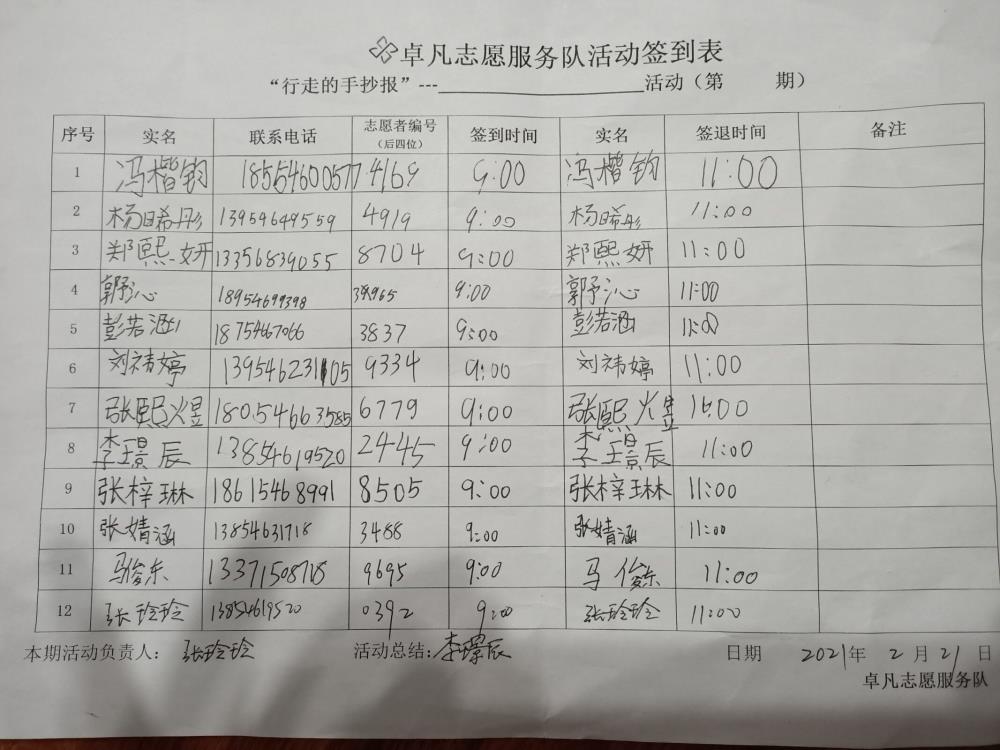 卓凡志愿服务队活动签到表
“行走的手抄报”---____________________活动（第 期）
序号 实名 联系电话 志愿者编号（后四位） 签到时间 实名 签退时间 备注
1 冯楷钧 18554600577 4169 9:00 冯楷钧 11:00
2 杨晞彤 13954649559 4919 9:00 杨晞彤 11:00
3 郑熙妍 13356839055 8704 9:00 郑熙妍 11:00
4 郭予沁 18954699398 9:00 郭予沁 11:00
5 彭若涵 18754667066 3837 9:00 彭若涵 11:00
6 刘祎婷 13954623105 9334 9:00 刘祎婷 11:00
7 张熙煜 18054663585 6779 9:00 张熙煜 11:00
8 李璟辰 13854619520 2445 9:00 李璟辰 11:00
9 张梓琳 18615468991 8505 9:00 张梓琳 11:00
10 张婧涵 13854631718 3488 9:00 张婧涵 11:00
11 马俊东 9695 9:00 马俊东 11:00
12 张玲玲 13854619520 0392 9:00 张玲玲 11:00
本期活动负责人： 张玲玲 活动总结: 李璟辰 日期 2021年 2 月 21 日
卓凡志愿服务队